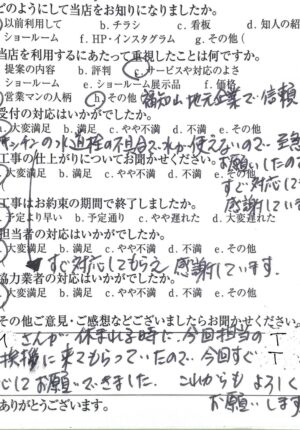 どのようにして当店をお知りになりましたか。
以前利用して b. チラシ c. 看板 d. 知人の紹
ショールーム f. HP・インスタグラム g. その他（
当店を利用するにあたって重視したことは何ですか。
提案の内容 b. 評判 c. サービスや対応のよさ
ショールーム e. ショールーム展示品 f. 価格
営業マンの人柄 h. その他 福知山 地元企業で信頼
受付の対応はいかがでしたか。
大変満足 b. 満足 c. やや不満 d. 不満 e. その他
キッチンの水道栓の不具合で水が使えないので、至急
工事の仕上がりについてお聞かせください。
お願いしたので
すぐ対応して
感謝してい
工事はお約束の期間で終了しましたか。
予定より早い b. 予定通り c. やや遅れた d. 大変遅れた
担当者の対応はいかがでしたか。
大変満足 b. 満足 c. やや不満 d. 不満 e. その他
すぐ対応してもらえ 感謝しています。
協力業者の対応はいかがでしたか。
大変満足 b. 満足 c. やや不満 d. 不満 e. その他
その他ご意見・ご感想などございましたらお聞かせください。
さんが 休まれる時に、今回担当の T
挨拶に来てもらっていたので、今回すぐ T
心してお願いできました。これからもよろしく
お願いします
ありがとうございます。